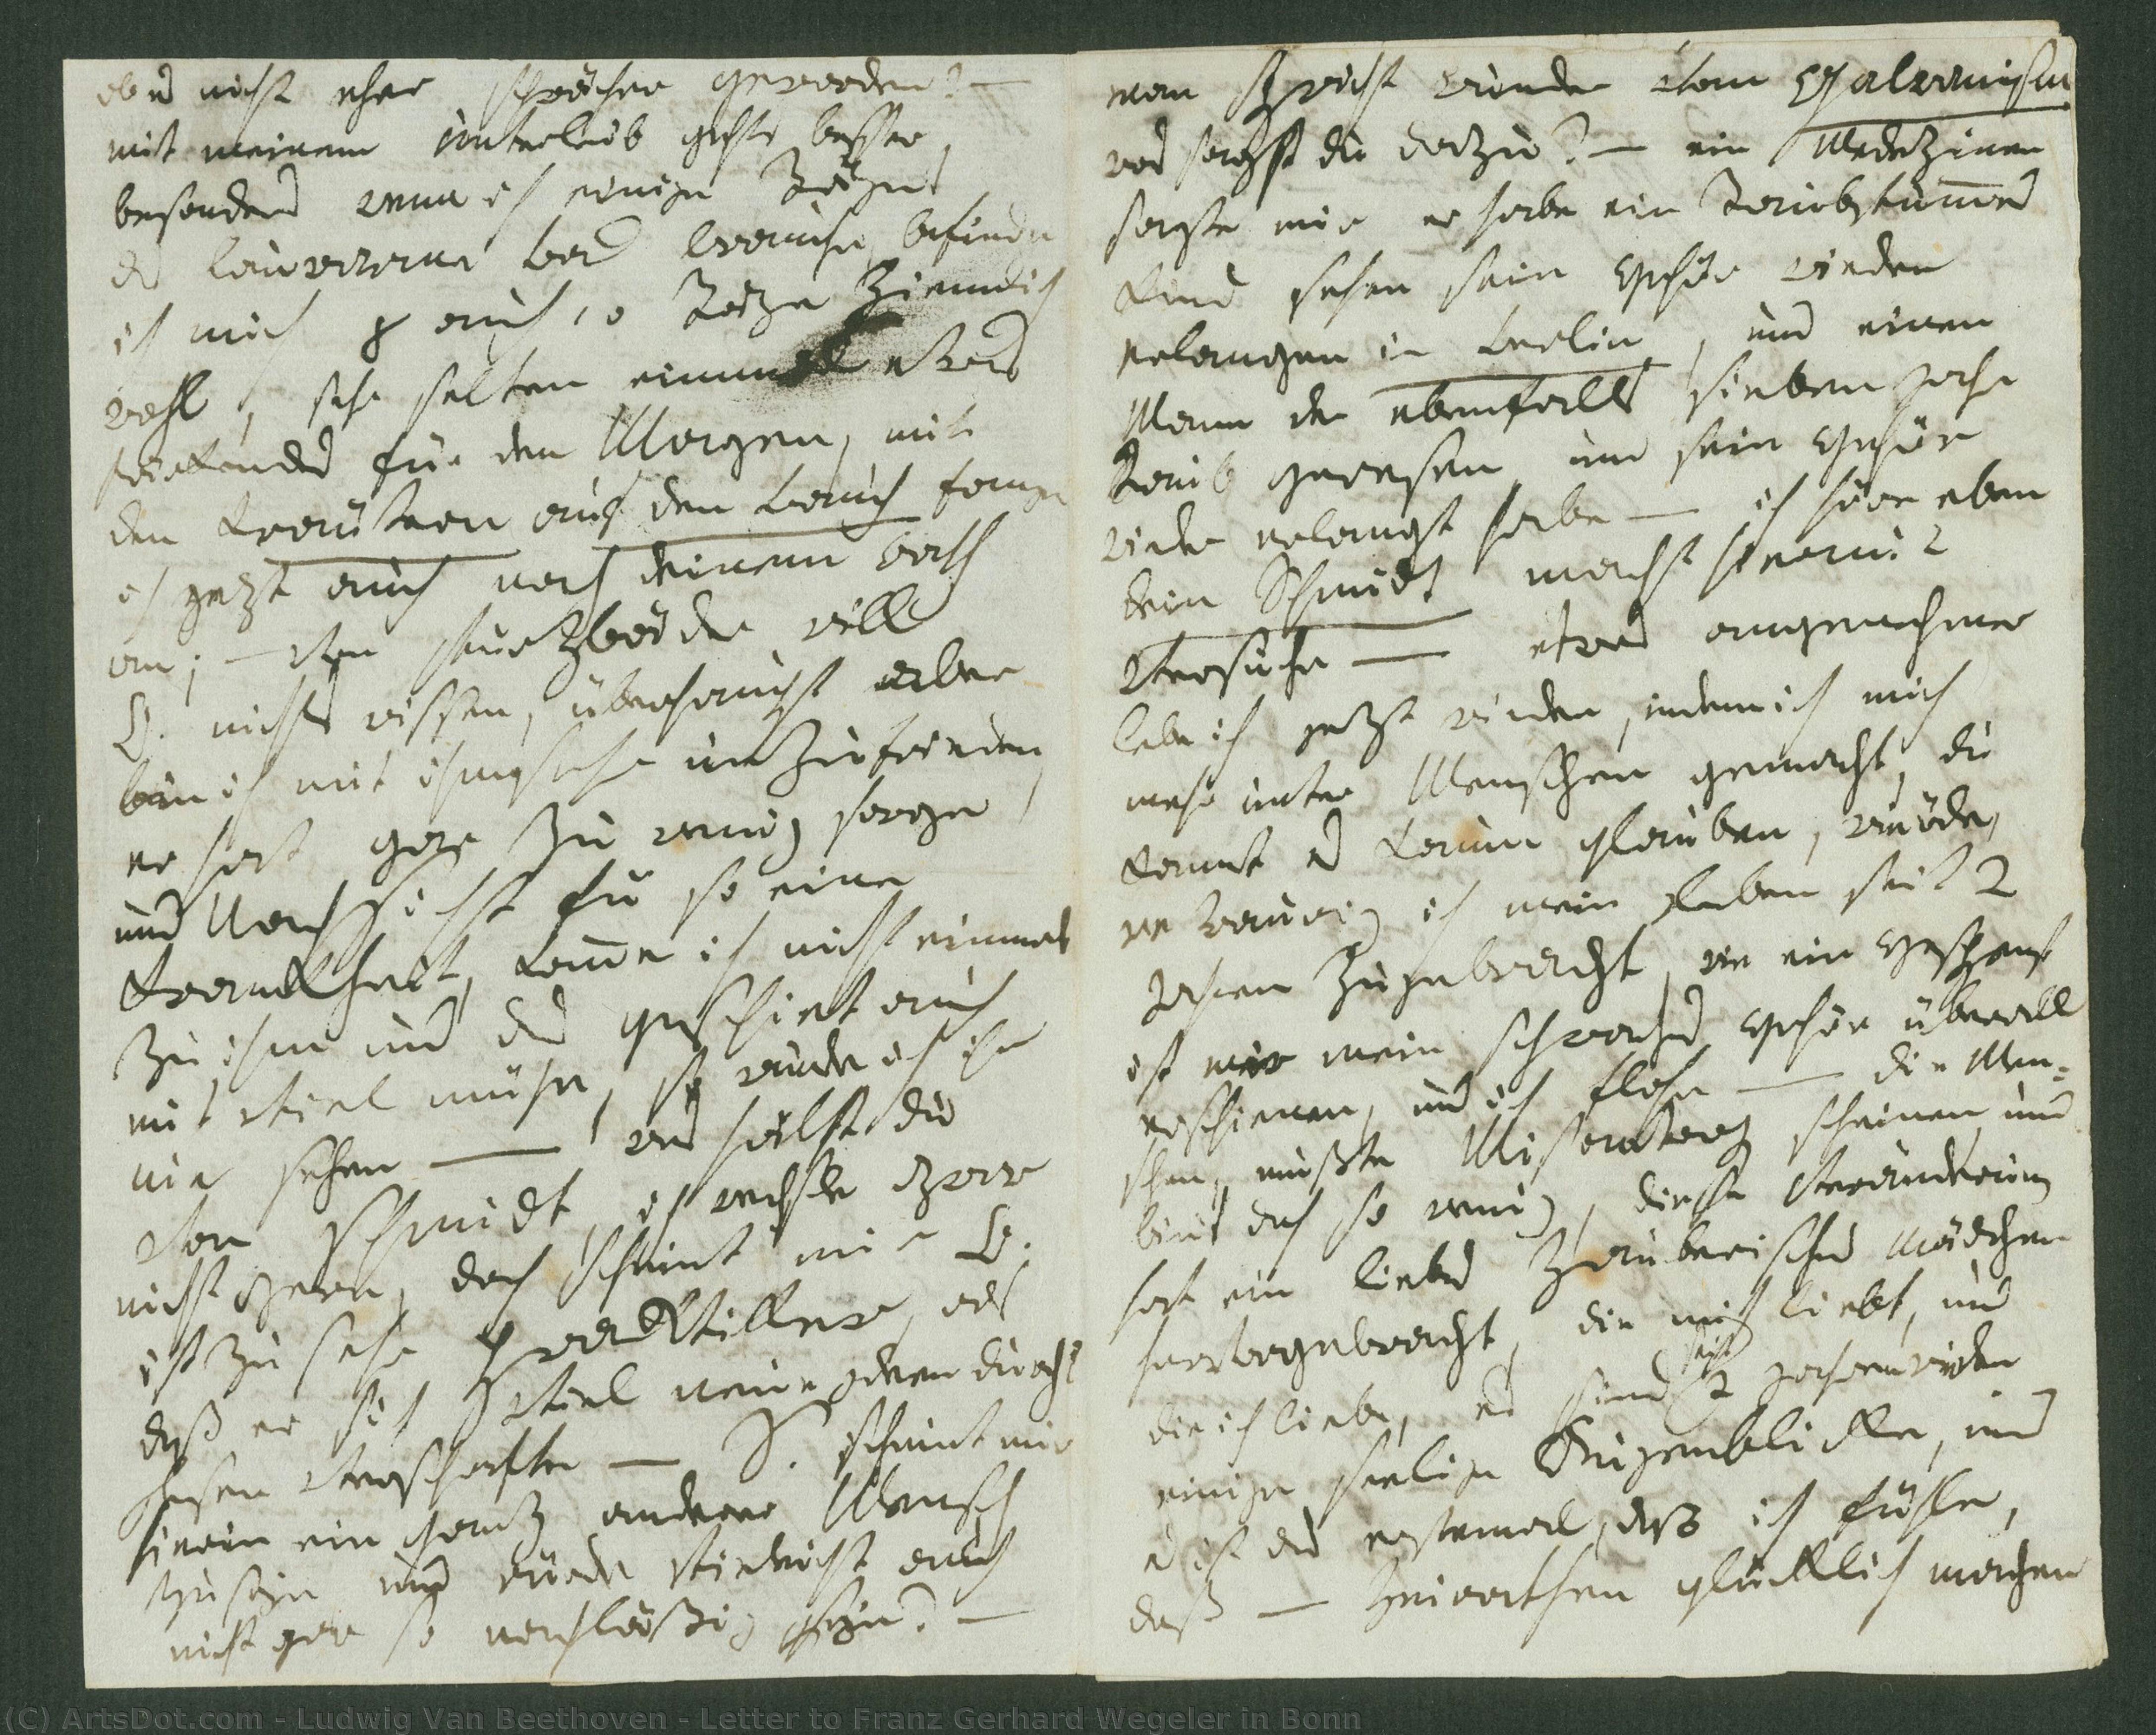 ob es nicht eher schwächer geworden? —
mit meinem unterleib gehts besser,
besonders wenn ich einige Täge
das lauwarme bad brauche, befinde
ich mich 8 auch 10 Täge ziemlich
wohl, sehr selten einmal etwas
stärkendes für den Magen, mit
den Kräutern auf den bauch fange
ich jetzt auch nach deinem rath
an; — von sturzbäder will
V. nichts wissen, überhaupt aber
bin ich mit ihm sehr unzufrieden,
er hat gar zu wenig sorge
und Nachsicht für so eine
Krankheit, komme ich nicht einmal
zu ihm und das geschieht auch
mit viel mühe, so würde ich ihn
nie sehen — was hälst du
von schmidt, ich wechsle zwar
nicht gern, doch scheint mir V.
ist zu sehr Praktiker, als
daß er sich viel neue ideen durchs
lesen verschafte — S. scheint mir
hierin ein ganz anderer Mensch
zu seyn und würde vieleicht auch
nicht gar so nachläßig seyn? —
man spricht wunder vom Galwanism
was sagst du dazu? — ein Medeziner
sagte mir er habe ein Taubstummes
Kind sehen sein Gehör wieder
erlangen in Berlin, und einen
Mann der ebenfalls sieben jahr
Taub gewesen und sein Gehör
wieder erlangt habe — ich höre eben
dein Schmidt macht hiermit
versuche — etwas angenehmer
lebe ich jetzt wieder, indem ich mich
mehr unter Menschen gemacht, du
kannst es kaum glauben, wie öde,
wie traurig ich mein Leben seit 2
Jahren zugebracht, wie ein Gespenst
ist mir mein schwaches Gehör überall
erschienen, und ich flohe — die Men=
schen, mußte Misantrop scheinen, und
bins doch so wenig, diese veränderung
hat ein liebes zauberisches Mädchen
hervorgebracht, die mich liebt, und
die ich liebe, es sind seit 2 jahren wieder
einige seelige Augenblicke, und
es ist das erstemal, daß ich fühle,
daß — heirathen glücklich machen
(C) ArtsDot.com - Ludwig Van Beethoven - Letter to Franz Gerhard Wegeler in Bonn